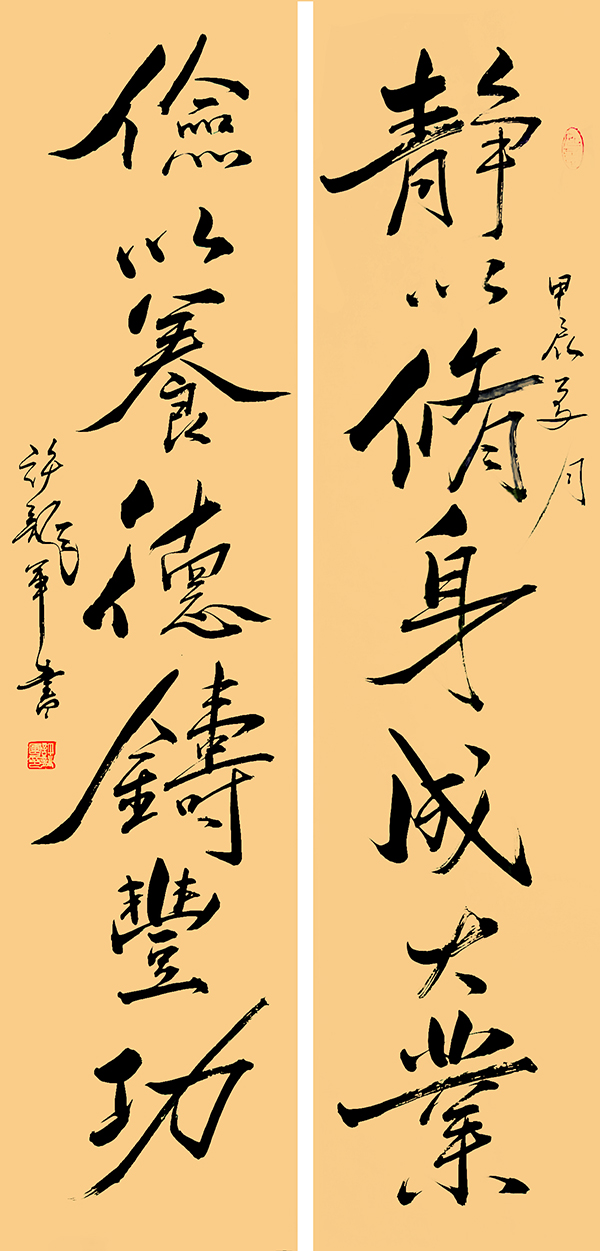 甲辰夏月
静以脩身成大業
儉以養德鑄豐功
許龍軍書